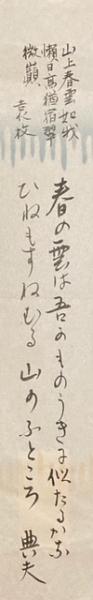 山上春雲如我
懶日高猶宿翠
微巓 袁枚
春の雲は吾がものうきに似たるかな
ひねもすねむる 山のふところ 典夫